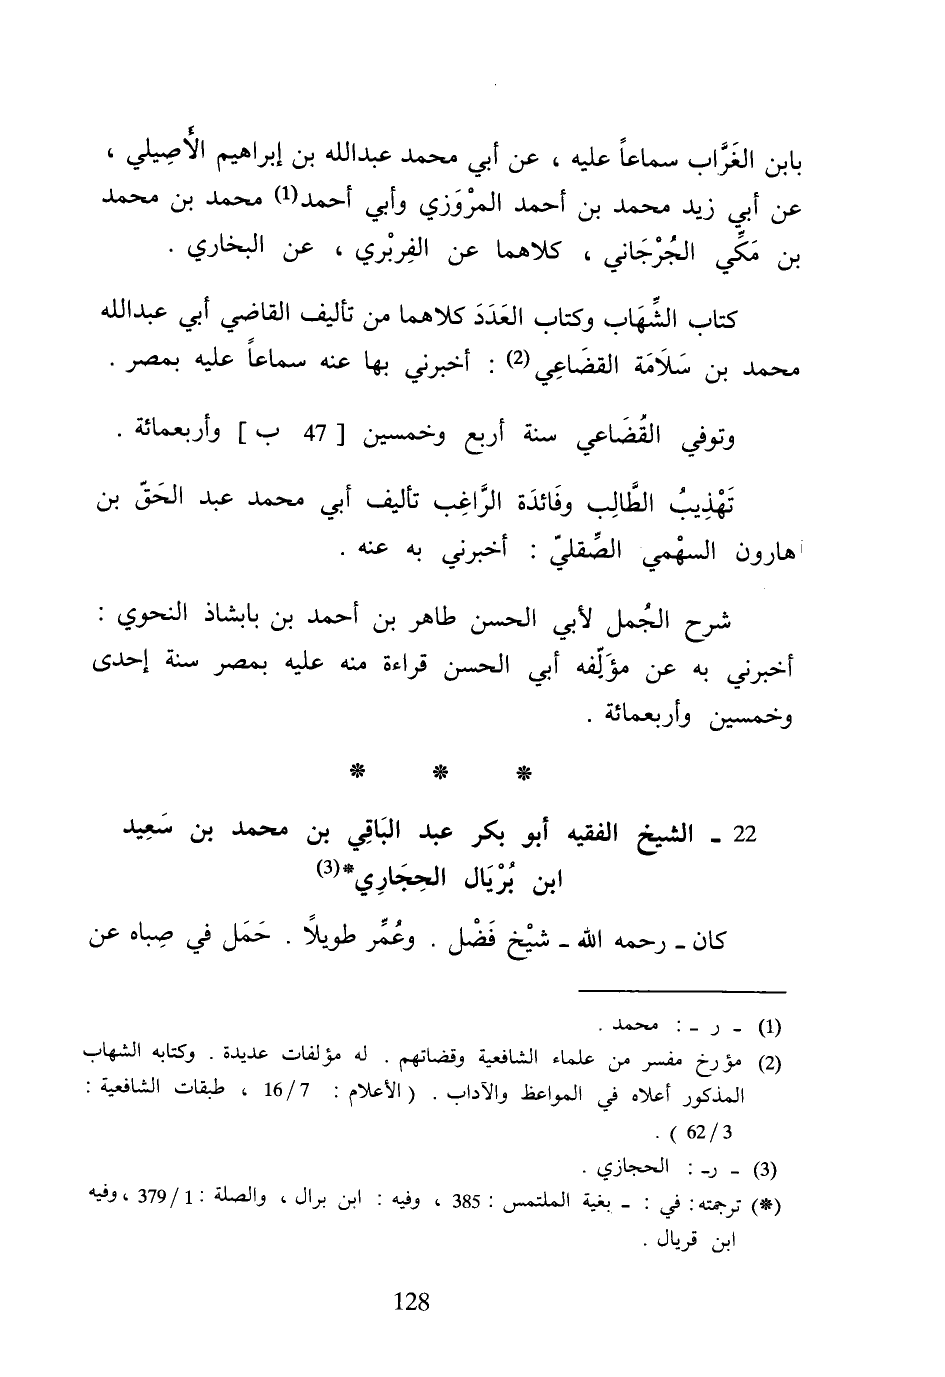 بابن الغَرَّاب سماعاً عليه ، عن أبي محمد عبدالله بن إبراهيم الأَصِيلي ،
عن أبي زيد محمد بن أحمد المرْوَزي وأبي أحمد(1) محمد بن محمد
بن مَكِّي الجُرْجَاني ، كلاهما عن الفِربْري ، عن البخاري .
كتاب الشِّهَاب وكتاب العَدَدَ كلاهما من تأليف القاضي أبي عبدالله
محمد بن سَلَامَة القضَاعِي(2) : أخبرني بها عنه سماعاً عليه بمصر .
وتوفي القُضَاعي سنة أربع وخمسين [ 47 ب ] وأربعمائة .
تَهْذِيبُ الطَّالِب وفَائدَة الرَّاغِب تأليف أبي محمد عبد الحَقّ بن
هارون السهْمي الصِّقليّ : أخبرني به عنه .
شرح الجُمل لأبي الحسن طاهر بن أحمد بن بابشاذ النحوي :
أخبرني به عن مؤَلِّفه أبي الحسن قراءة منه عليه بمصر سنة إحدى
وخمسين وأربعمائة .
* * *
22 ـ الشيخ الفقيه أبو بكر عبد البَاقِي بن محمد بن سَعِيد
ابن بُرْيَال الحِجَارِي*(3)
كان ـ رحمه الله ـ شيْخ فَضْل . وعُمِّر طويلاً . حَمَل في صِباه عن
(1) ـ ر ـ : محمد .
(2) مؤرخ مفسر من علماء الشافعية وقضاتهم . له مؤلفات عديدة . وكتابه الشهاب
المذكور أعلاه في المواعظ والآداب . ( الأعلام : 7 / 16 ، طبقات الشافعية :
3 / 62 ) .
(3) ـ رـ : الحجازي .
(*) ترجمته : في : ـ بغية الملتمس : 385 ، وفيه : ابن برال ، والصلة : 1 / 379 ، وفيه
ابن قريال .
128